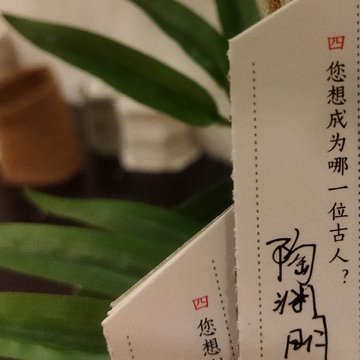 四 您想成为哪一位古人？
陶渊明
四 您想